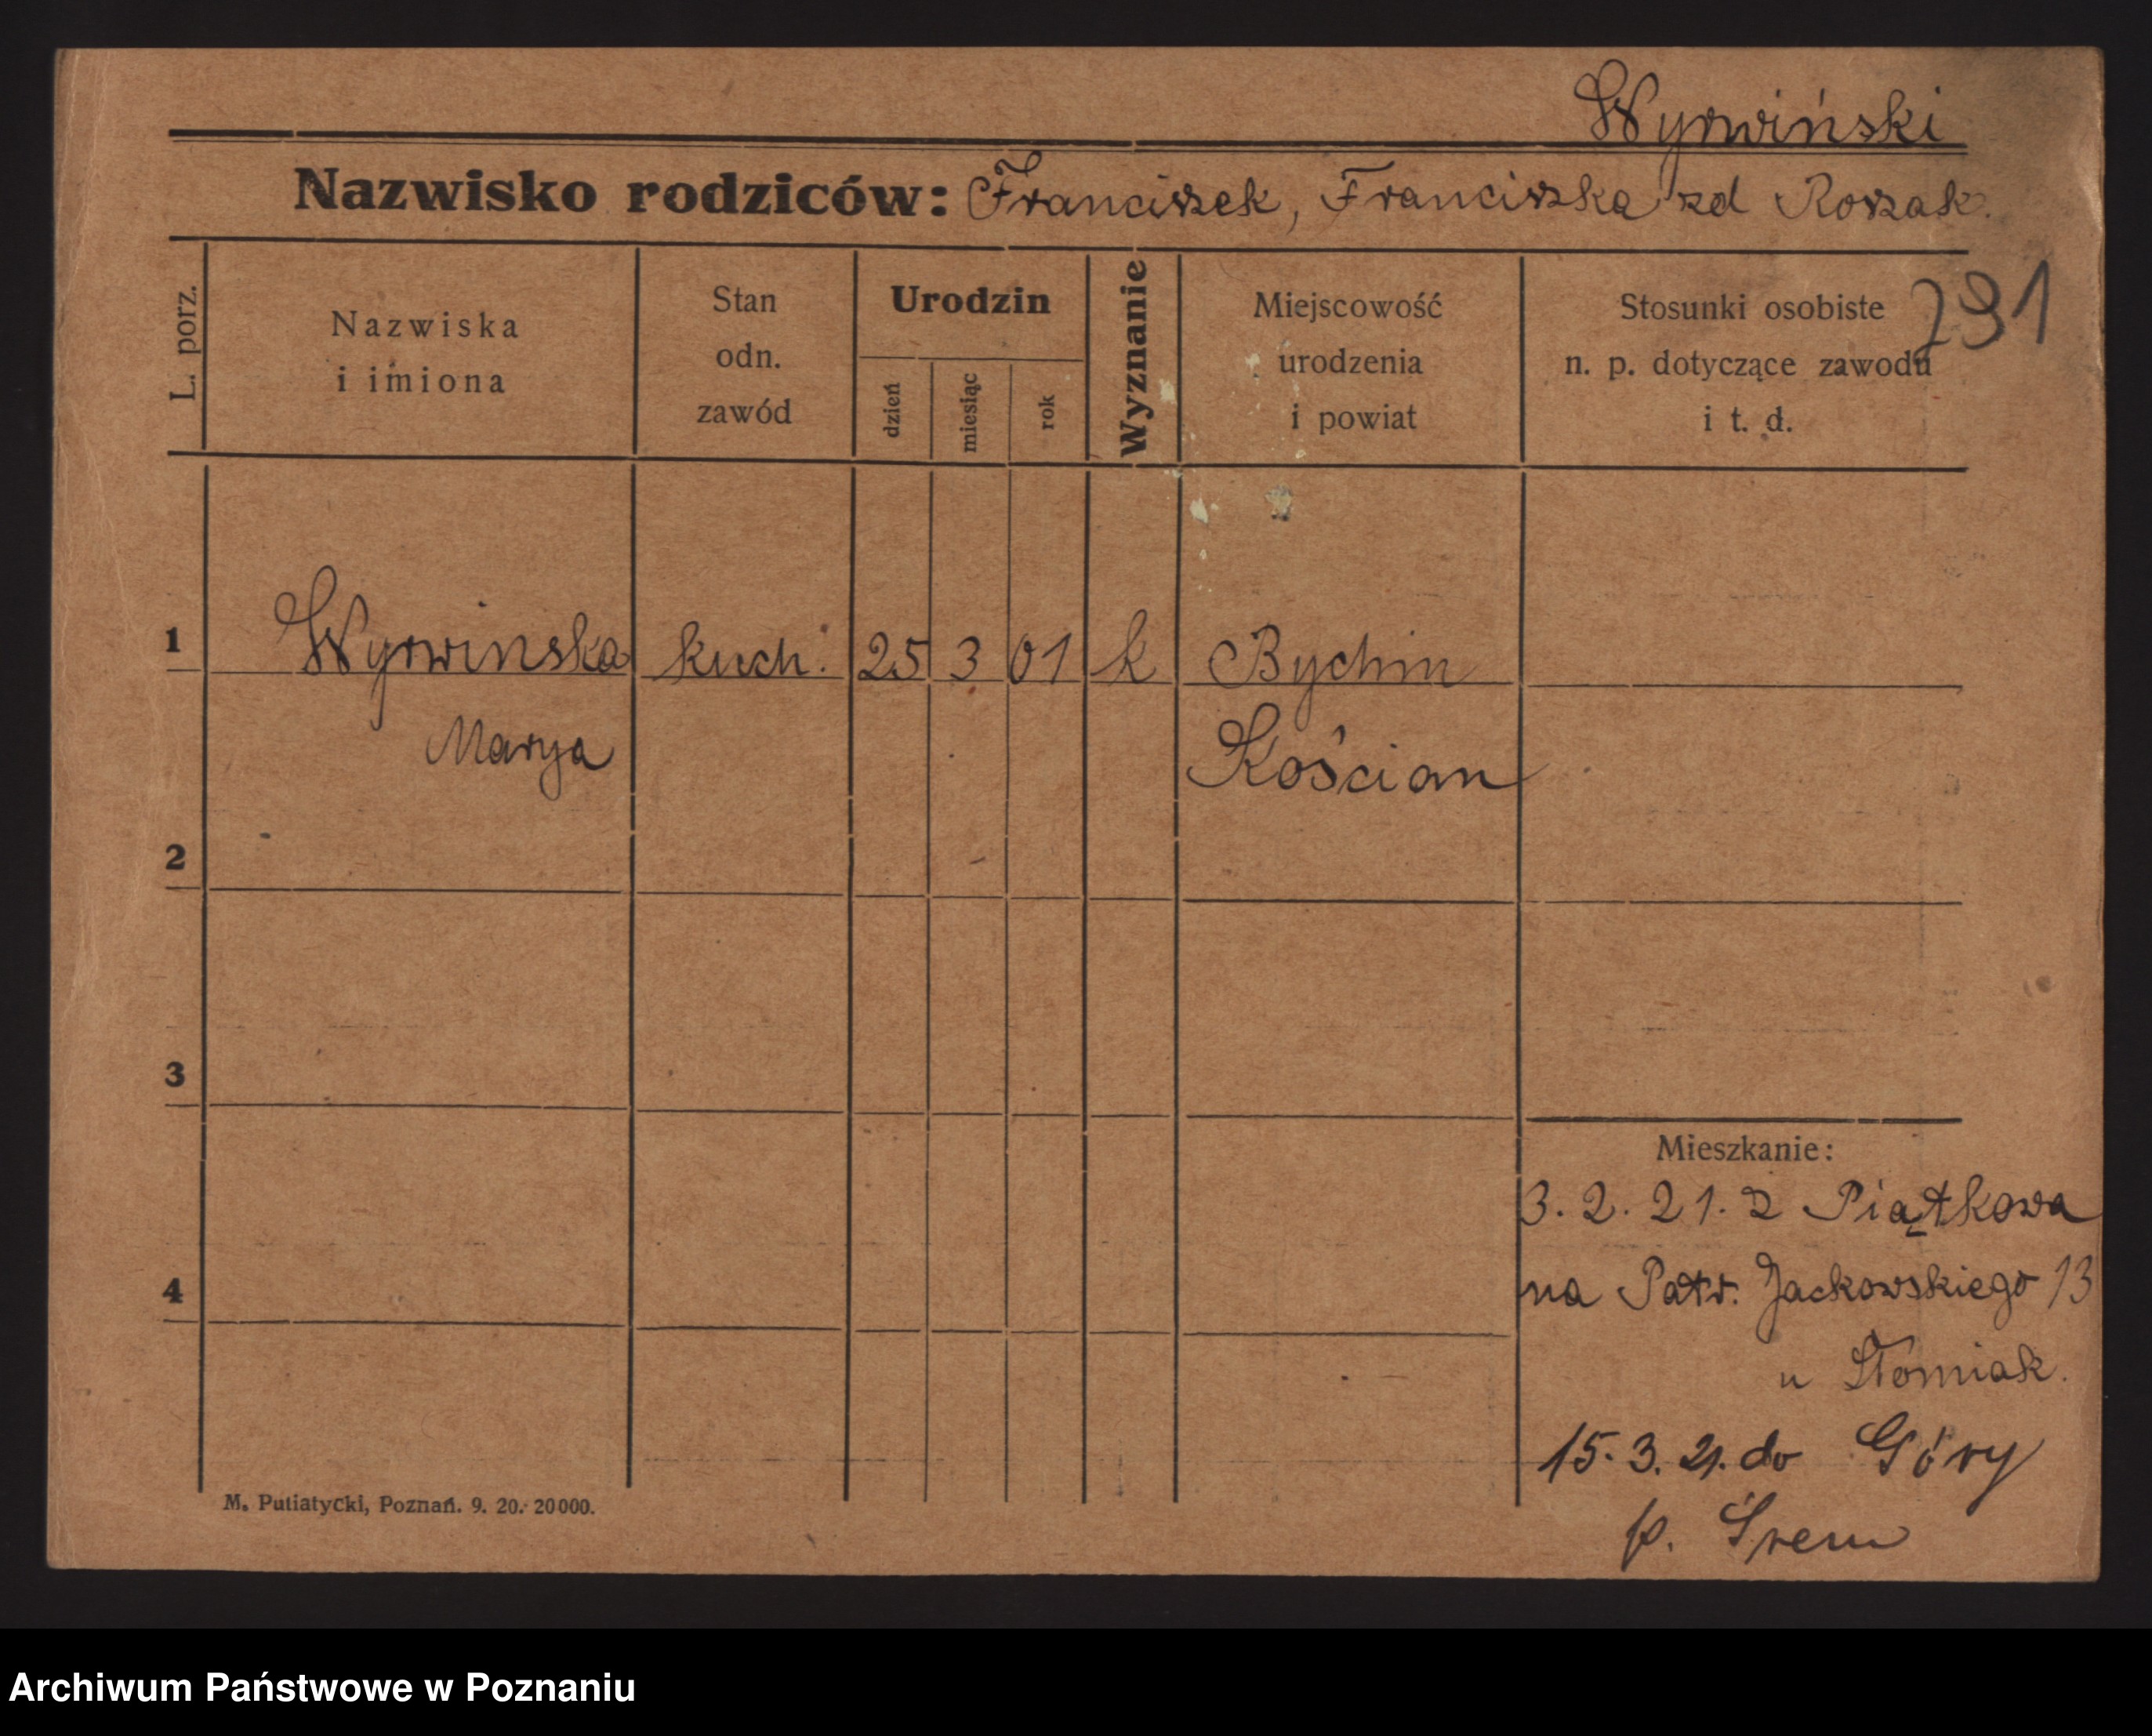 Wyrwiński
Nazwisko rodziców: Franciszek, Franciszka zd Roszak.
291
L. porz.
Nazwiska
i imiona
Stan
odn.
zawód
Urodzin
dzień
miesiąc
rok
Wyznanie
Miejscowość
urodzenia
i powiat
Stosunki osobiste
n. p. dotyczące zawodu
i t. d.
1 Wyrwinska kuch. 25 3 01 k Bychin
Marya Kościan
2
3
4
Mieszkanie:
3. 2. 21. z Piątkowa
na Patr. Jackowskiego 13
u Słomiak.
15. 3. 21. do Góry
p. Śrem
M. Putiatycki, Poznań. 9. 20. 20000.
Archiwum Państwowe w Poznaniu